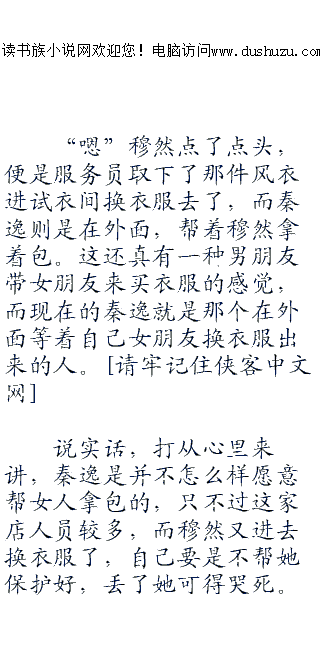 读书族小说网欢迎您！电脑访问www.dushuzu.com
“嗯”穆然点了点头，
便是服务员取下了那件风衣
进试衣间换衣服去了，而秦
逸则是在外面，帮着穆然拿
着包。这还真有一种男朋友
带女朋友来买衣服的感觉，
而现在的秦逸就是那个在外
面等着自己女朋友换衣服出
来的人。[请牢记住侠客中文
网]
说实话，打从心里来
讲，秦逸是并不怎么样愿意
帮女人拿包的，只不过这家
店人员较多，而穆然又进去
换衣服了，自己要是不帮她
保护好，丢了她可得哭死。